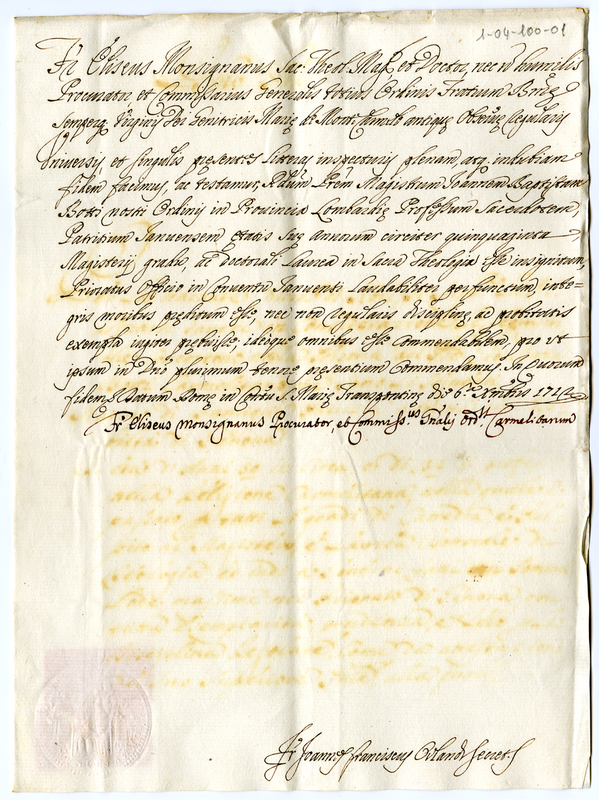 1-04-100-01
Fr. Eliseus Monsignanus Sac: Theol: Mag.r et Doctor, nec nō humilis
Procurator et Commissarius Generalis totius Ordinis Fratrum Bmę
Semperq. Virginis Dei Genitricis Marię de Monte Carmelo antiquę Obseruę Regularis
Vniversis, et singulis pręsentes litteras inspecturis plenam, atq. indubiam
fidem facimus, ac testamur, Rdum Prem Magistrum Joannem Baptistam
Botti nostri Ordinis in Provincia Lombardię Professum Sacerdotem,
Patritium Januensem ętatis suę annorum circiter quinquaginta
Magisterij gradu, ac doctorali Laurea in Sacra Theologia esse insignitum,
Prioratus Officio in Conventu Januensi laudabiliter perfunctum, inte=
gris moribus pręditum esse, nec non regularis disciplinę, ac probitatis
exempla iugiter prębuisse, ideoque omnibus esse commendabilem, pro ut
ipsum in Dño plurimum tenore pręsentium commendamus. In quorum
fidem &c Datum Romę in Conłu S. Marię Transpontinę die 6.
Fr. Eliseus Monsignanus Procurator, et Commiss.us Gnalis Ord.is Carmelitarum
Fr. Joannes Franciscus Orlandi Secret.s